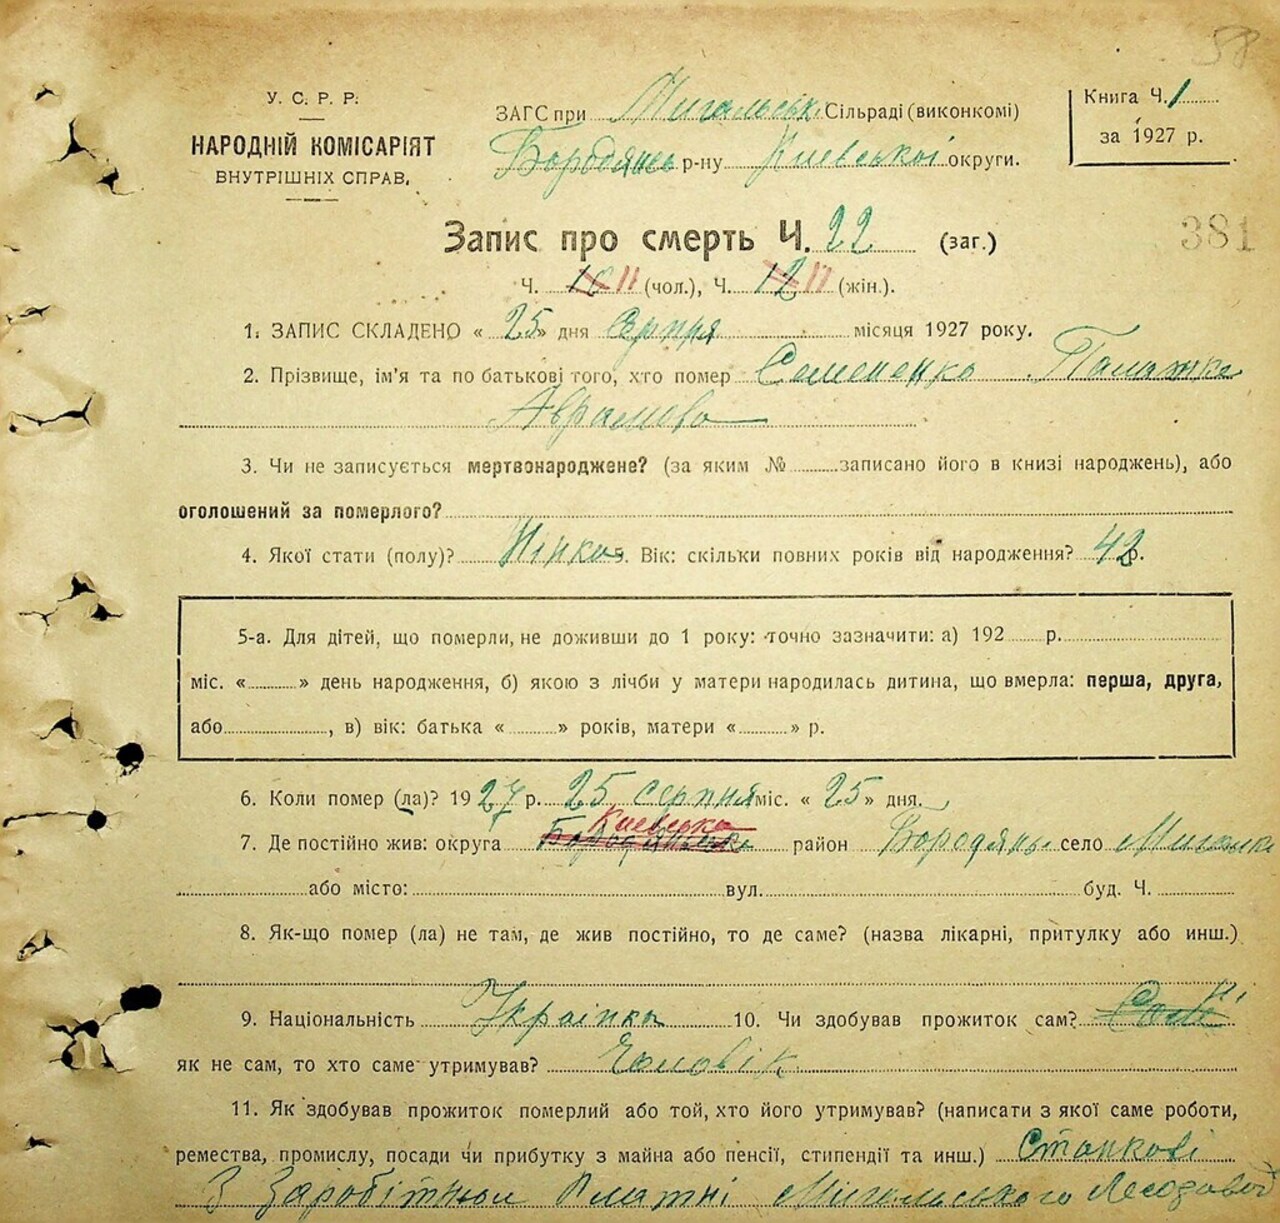 58
У. С. Р. Р.
НАРОДНІЙ КОМІСАРІЯТ
ВНУТРІШНІХ СПРАВ.
ЗАГС при Мигальськ. Сільраді (виконкомі)
Бородянсь р-ну Киевської округи.
Книга Ч. 1
за 1927 р.
Запис про смерть Ч. 22 (заг.)
381
Ч. 10 11 (чол.), Ч. 12 11 (жін.).
1. ЗАПИС СКЛАДЕНО « 25 » дня Серпня місяця 1927 року.
2. Прізвище, ім'я та по батькові того, хто помер Семененко
Аврамова
3. Чи не записується мертвонароджене? (за яким № записано його в книзі народжень), або
оголошений за померлого?
4. Якої стати (полу)? Жінка Вік: скільки повних років від народження? 42 р.
5-а. Для дітей, що померли, не доживши до 1 року: точно зазначити: а) 192 р.
міс. « » день народження, б) якою з лічби у матери народилась дитина, що вмерла: перша, друга,
або , в) вік: батька « » років, матери « » р.
6. Коли помер (ла)? 1927 р. 25 серпня міс. « 25 » дня.
Киевська
7. Де постійно жив: округа Бородянська район Бородянь село Мигалки
або місто: вул. буд. Ч.
8. Як-що помер (ла) не там, де жив постійно, то де саме? (назва лікарні, притулку або инш.)
9. Національність Українка 10. Чи здобував прожиток сам? Сам Ні
як не сам, то хто саме утримував? Чоловік
11. Як здобував прожиток померлий або той, хто його утримував? (написати з якої саме роботи,
ремества, промислу, посади чи прибутку з майна або пенсії, стипендії та инш.)
З Заробітной Платні Мигальського